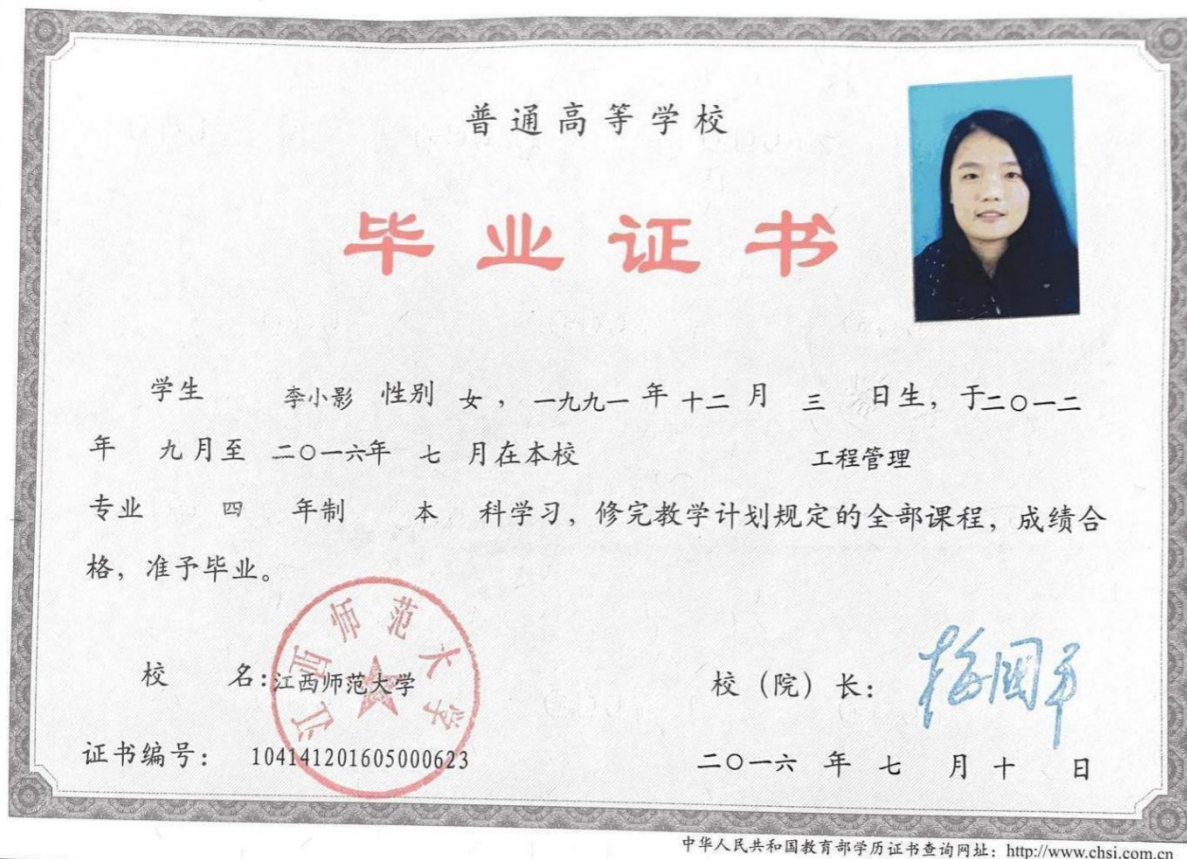 普通高等学校
毕业证书
学生 李小影 性别 女 ，一九九一 年 十二 月 三 日生，于二〇一二
年 九 月至 二〇一六年 七 月在本校 工程管理
专业 四 年制 本 科学习，修完教学计划规定的全部课程，成绩合
格，准予毕业。
江西师范大学
校 名：江西师范大学
校（院）长： 梅国平
证书编号： 104141201605000623
二〇一六 年 七 月 十 日
中华人民共和国教育部学历证书查询网址：http://www.chsi.com.cn